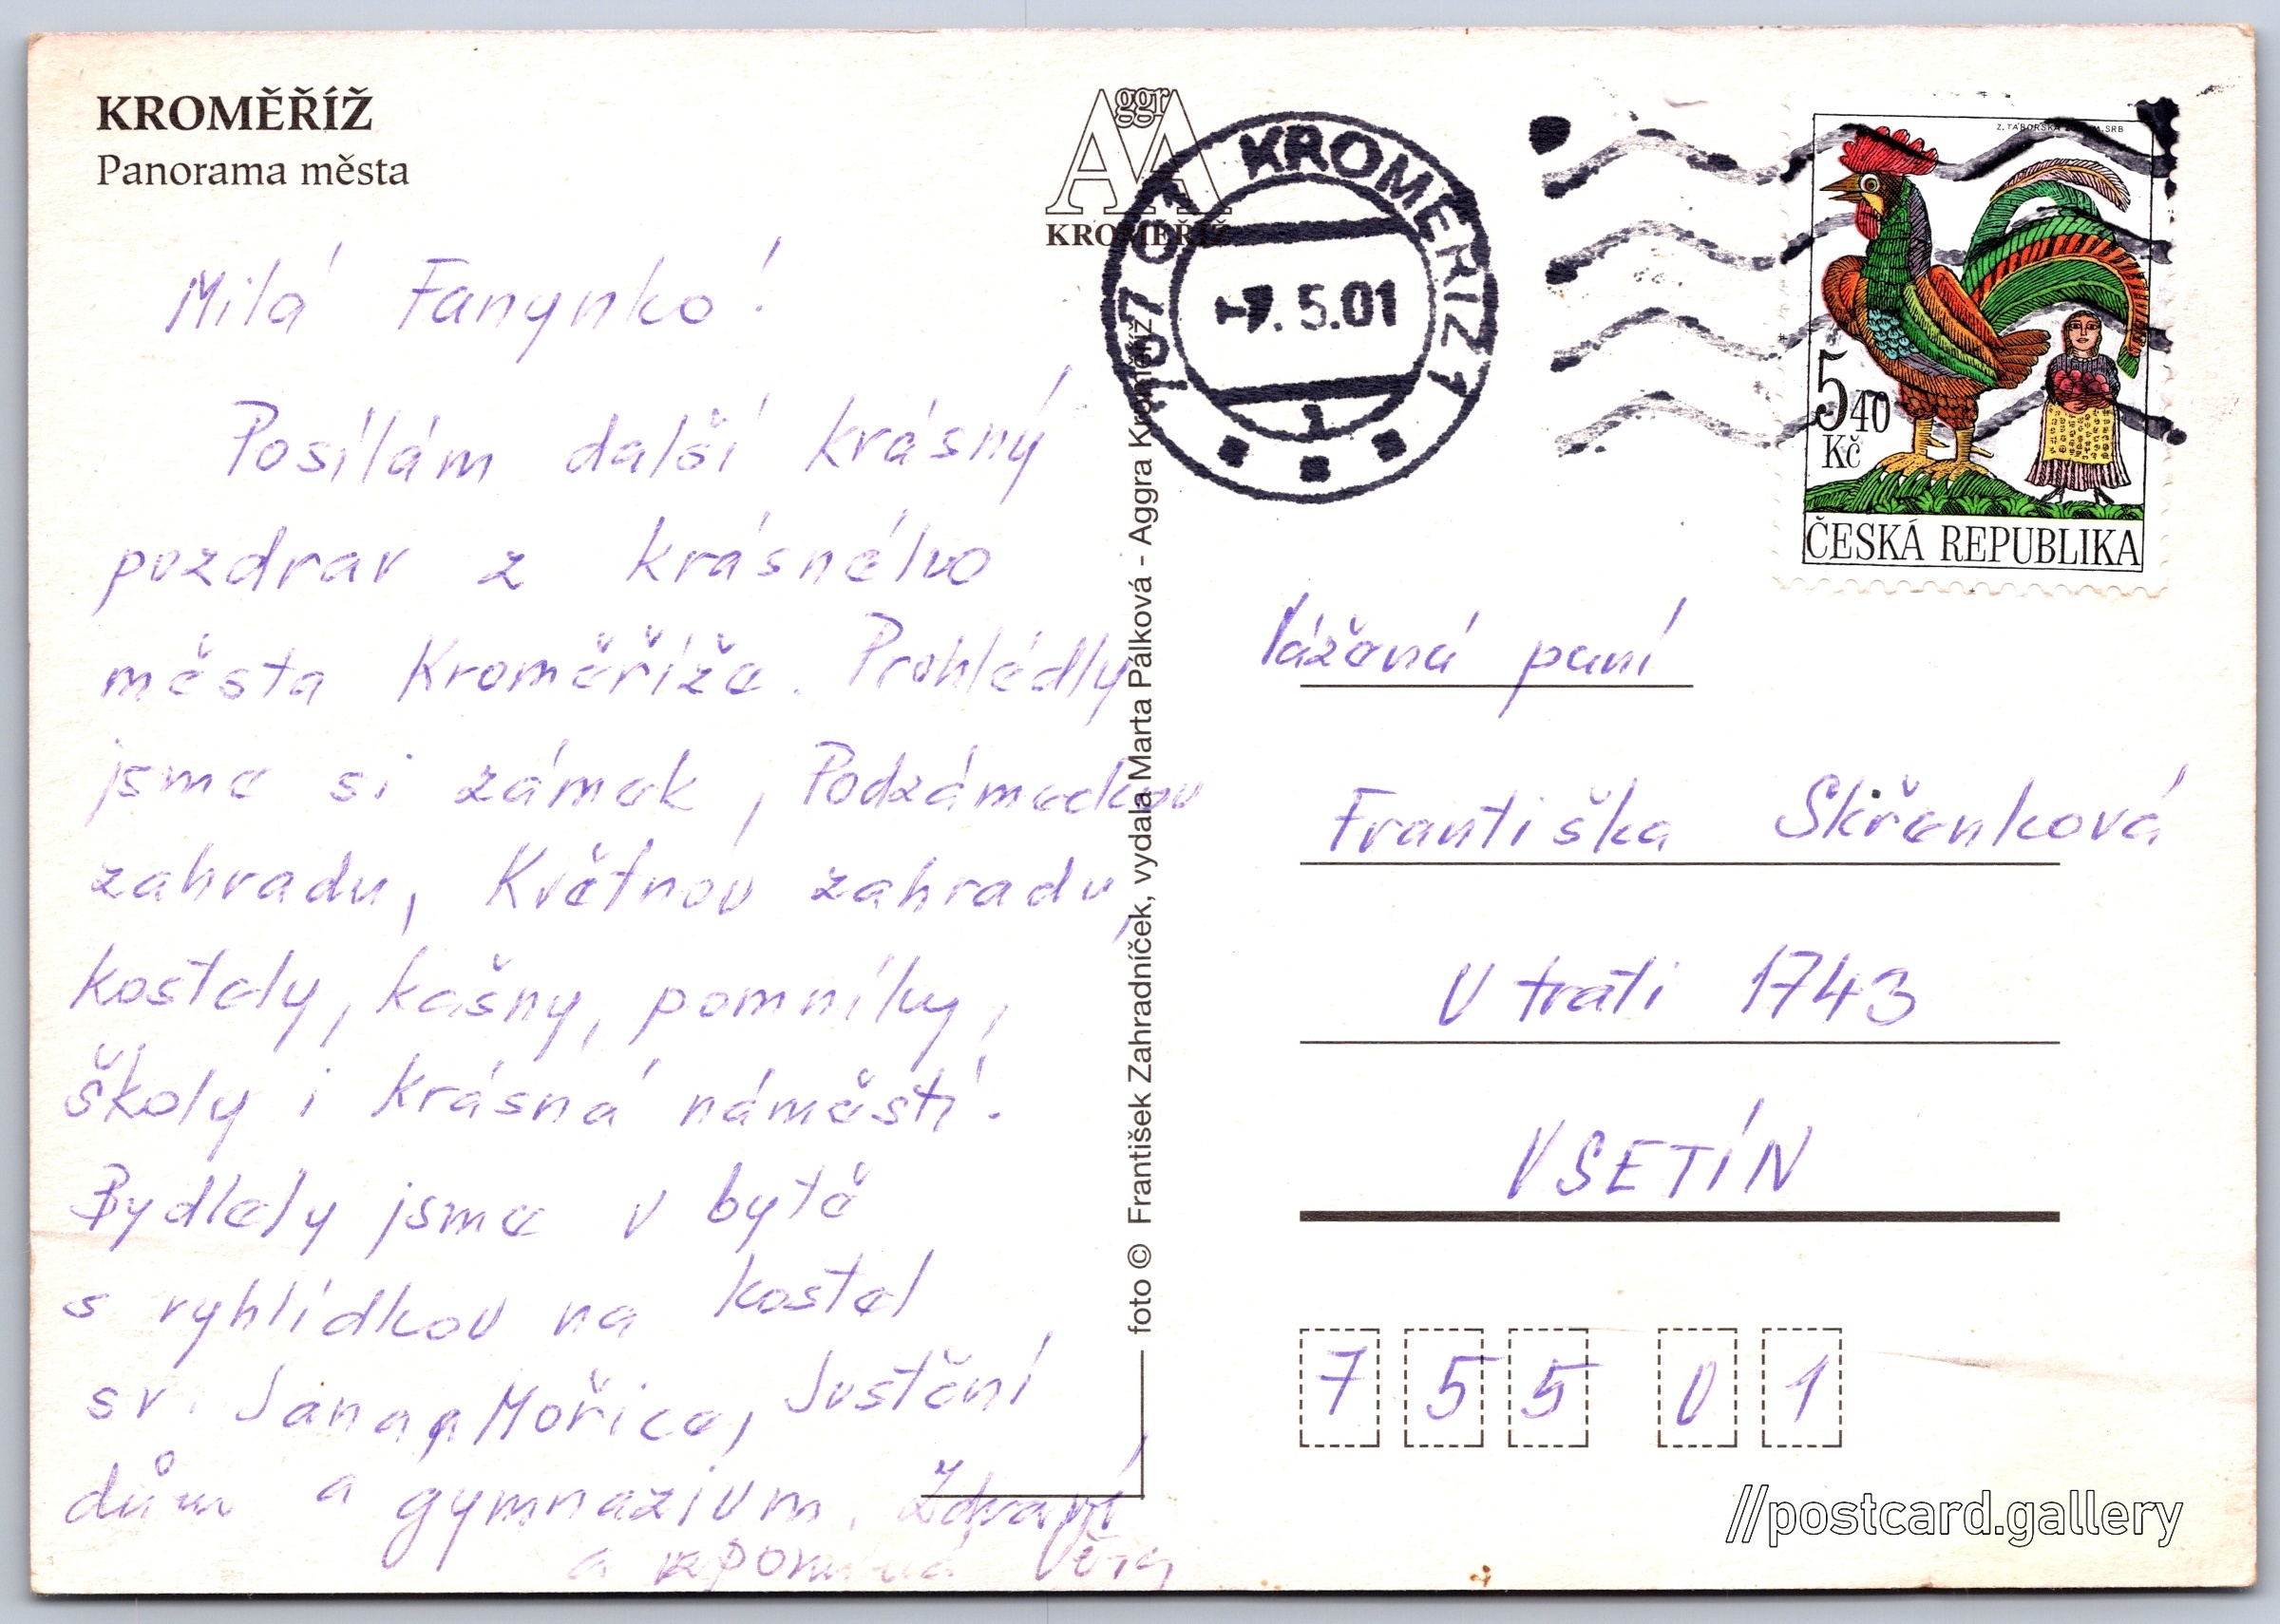 KROMĚŘÍŽ
Panorama města
Milá Fanynko!
Posílám další krásný
pozdrav z krásného
města Kroměříže. Prohlédly
jsme si zámek, Podzámeckou
zahradu, Květnou zahradu,
kostely, kašny, pomníky,
školy i krásná náměstí.
Bydlely jsme v bytě
s vyhlídkou na kostel
sv. Jana, Mořice, Justiční
dům a gymnazium. Zdraví
a vzpomíná Věra
foto © František Zahradníček, vydala Marta Palková - Aggra Kroměříž
Aggra
KROMĚŘÍŽ
767 01 KROMĚŘÍŽ 1
-7. 5.01
1
Z. TABORSKÁ
5,40
Kč
ČESKÁ REPUBLIKA
Vážená paní
Františka Skřenková
V trati 1743
VSETÍN
755 01
//postcard.gallery